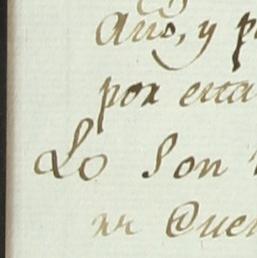 Año, y p
por esta
Lo Son
nr Quen